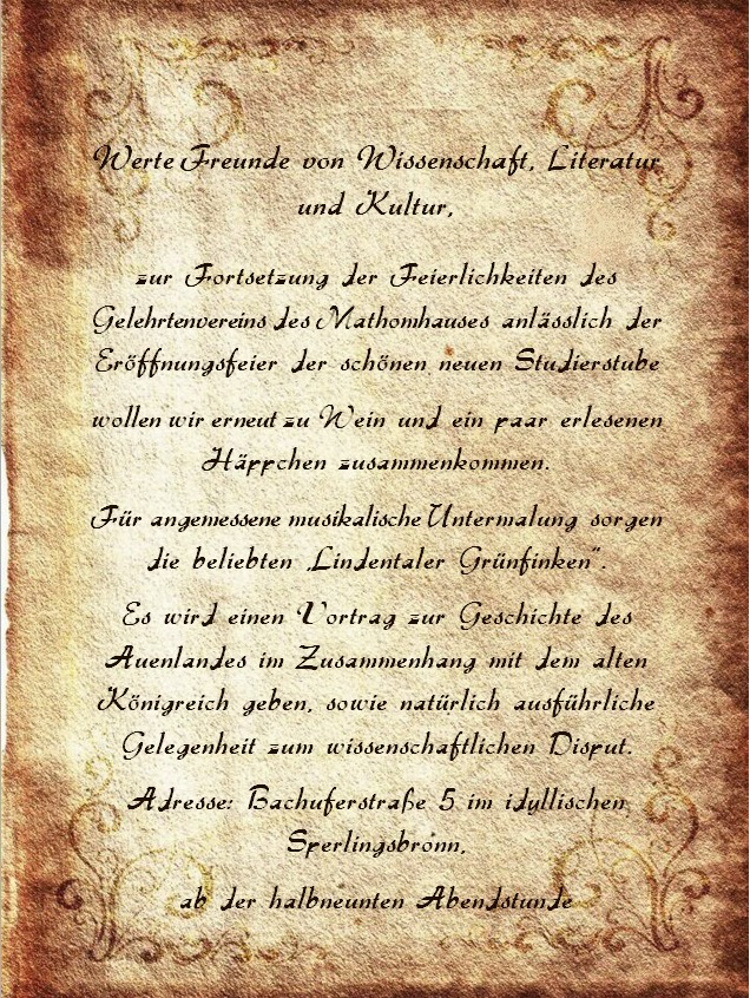 Werte Freunde von Wissenschaft, Literatur
und Kultur,
zur Fortsetzung der Feierlichkeiten des
Gelehrtenvereins des Mathomhauses anlässlich der
Eröffnungsfeier der schönen neuen Studierstube
wollen wir erneut zu Wein und ein paar erlesenen
Häppchen zusammenkommen.
Für angemessene musikalische Untermalung sorgen
die beliebten „Lindentaler Grünfinken“.
Es wird einen Vortrag zur Geschichte des
Auenlandes im Zusammenhang mit dem alten
Königreich geben, sowie natürlich ausführliche
Gelegenheit zum wissenschaftlichen Disput.
Adresse: Bachuferstraße 5 im idyllischen
Sperlingsbronn,
ab der halbneunten Abendstunde